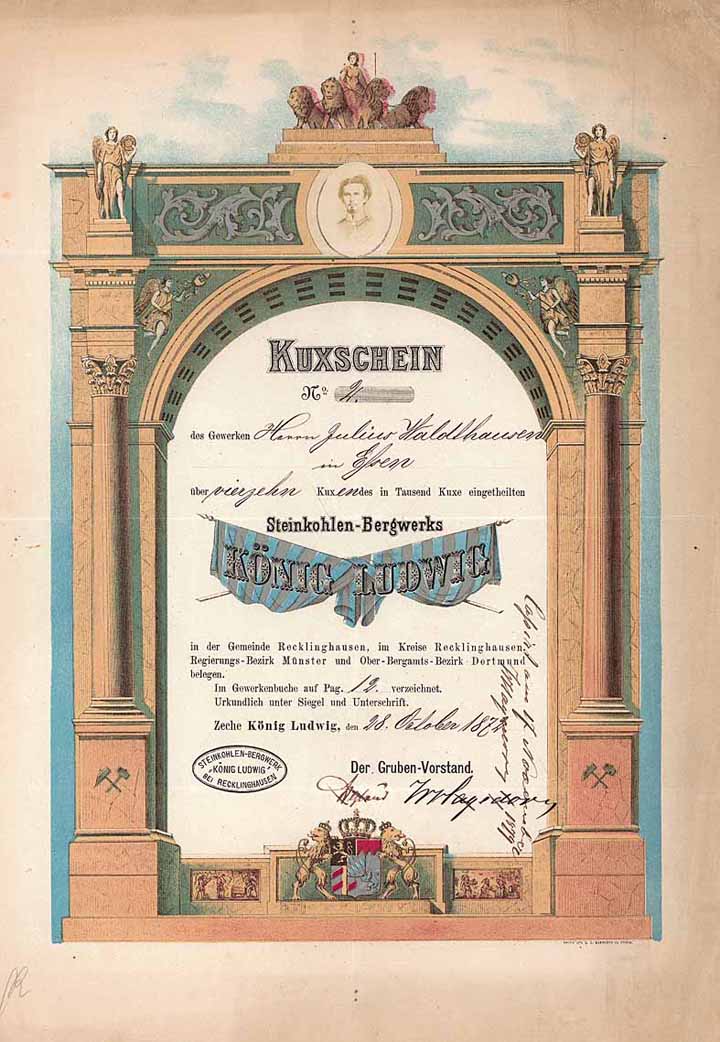 KUXSCHEIN
No. 4.
des Gewerken Herrn Julius Waldthausen
in Essen
über vierzehn Kuxen des in Tausend Kuxe eingetheilten
Steinkohlen-Bergwerks
KÖNIG LUDWIG
in der Gemeinde Recklinghausen, im Kreise Recklinghausen,
Regierungs-Bezirk Münster und Ober-Bergamts-Bezirk Dortmund
belegen.
Im Gewerkenbuche auf Pag. 12 verzeichnet.
Urkundlich unter Siegel und Unterschrift.
Zeche König Ludwig, den 28. October 1872
STEINKOHLEN-BERGWERK
"KÖNIG LUDWIG"
BEI RECKLINGHAUSEN
Der Gruben-Vorstand.